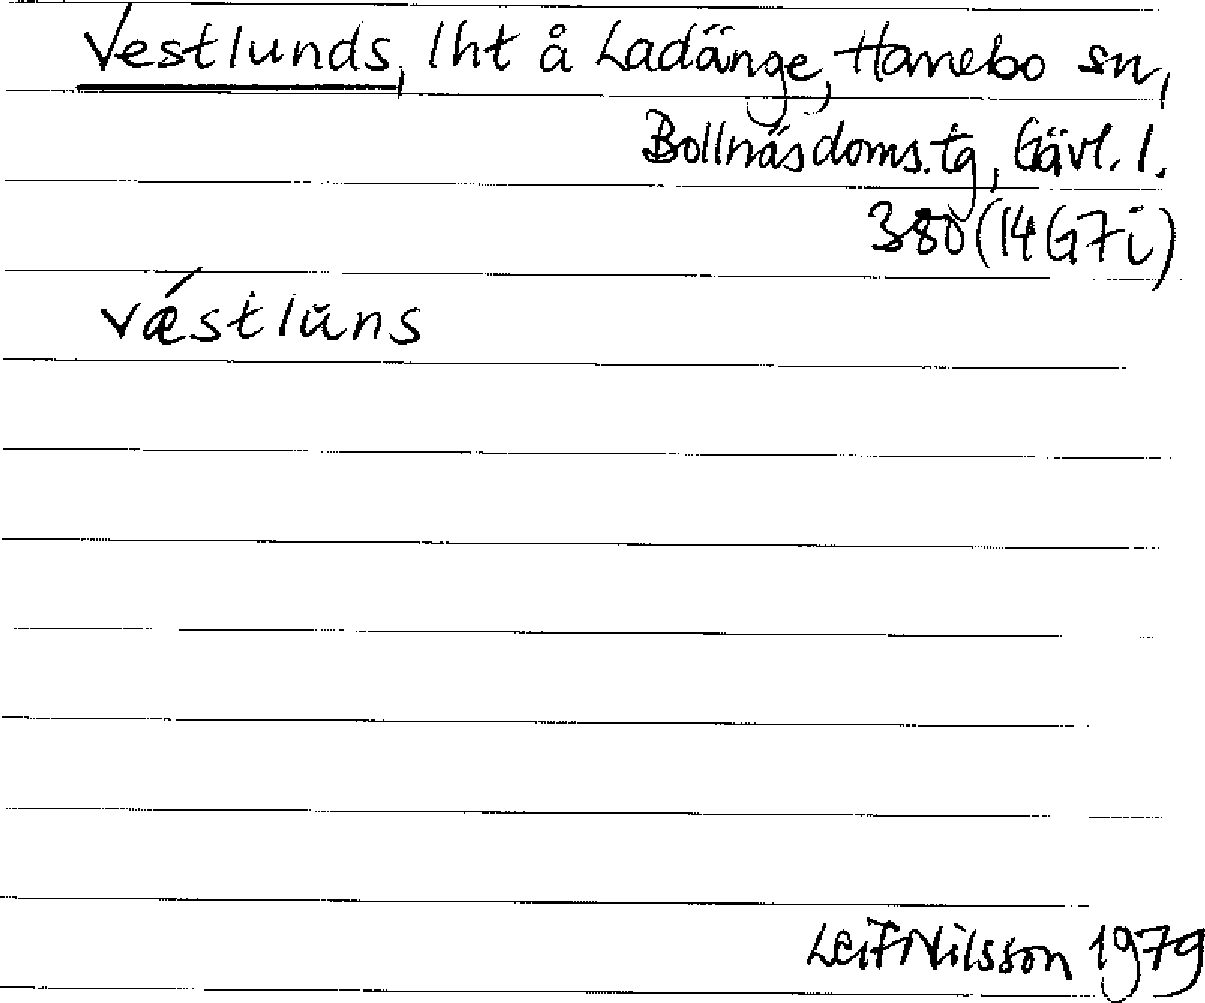 Vestlunds, lht å Ladänge, Hanebo sn,
Bollnäs doms. tg, Gävl. l.
380 (14G7i)
vǽstlŭns
Leif Nilsson 1979